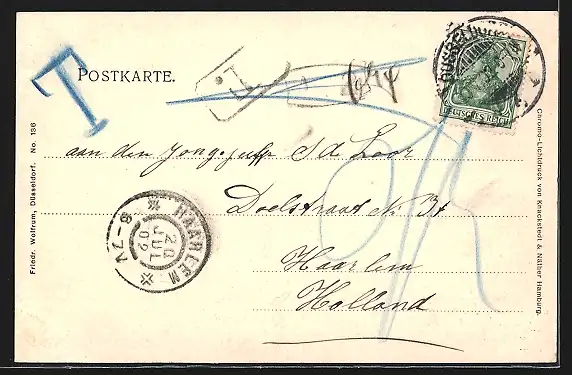 T
POSTKARTE.
T
DÜSSELDORF
DEUTSCHES REICH
aan den Jongejuffr. S d Loor
Doelstraat No 37
Haarlem
Holland
HAARLEM
20
JUL
02
8-7V
Friedr. Wolfrum, Düsseldorf. No. 136
Chromo-Lichtdruck von Knackstedt & Näther Hamburg.